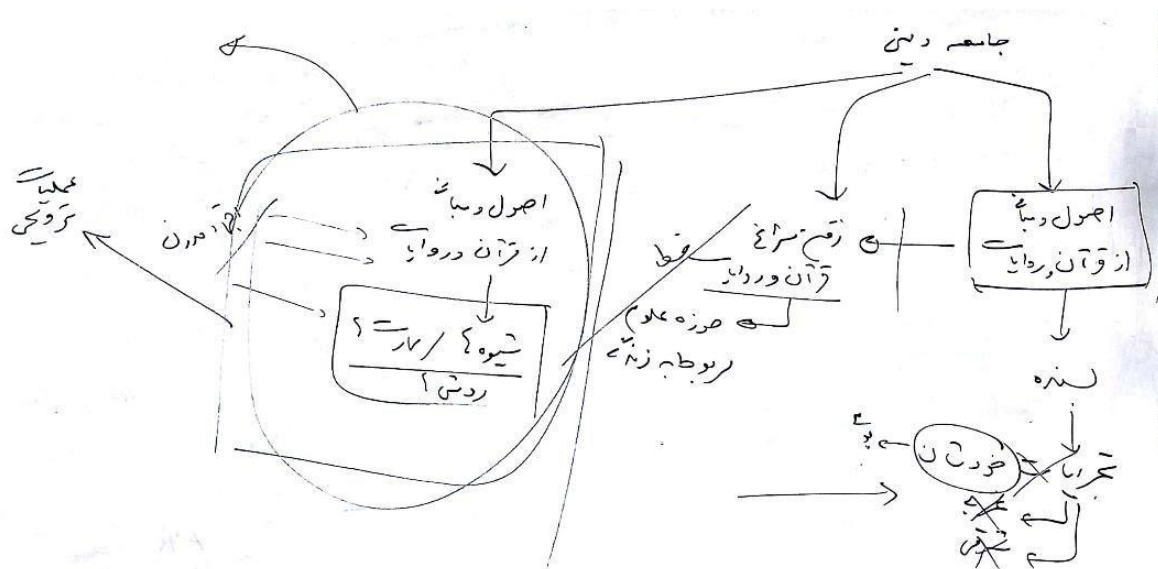 جامعه دینی
اصول و مبانی
از قرآن و روایات
بسنده
تجربیات
خودشان
غربی
شرقی
رفتن سراغ
قرآن و روایات
فقط
حوزه علوم
مربوط به زندگی
اصول و مبانی
از قرآن و روایات
شیوه‌ها / مهارت‌ها
روش‌ها
عملیات
ترویجی